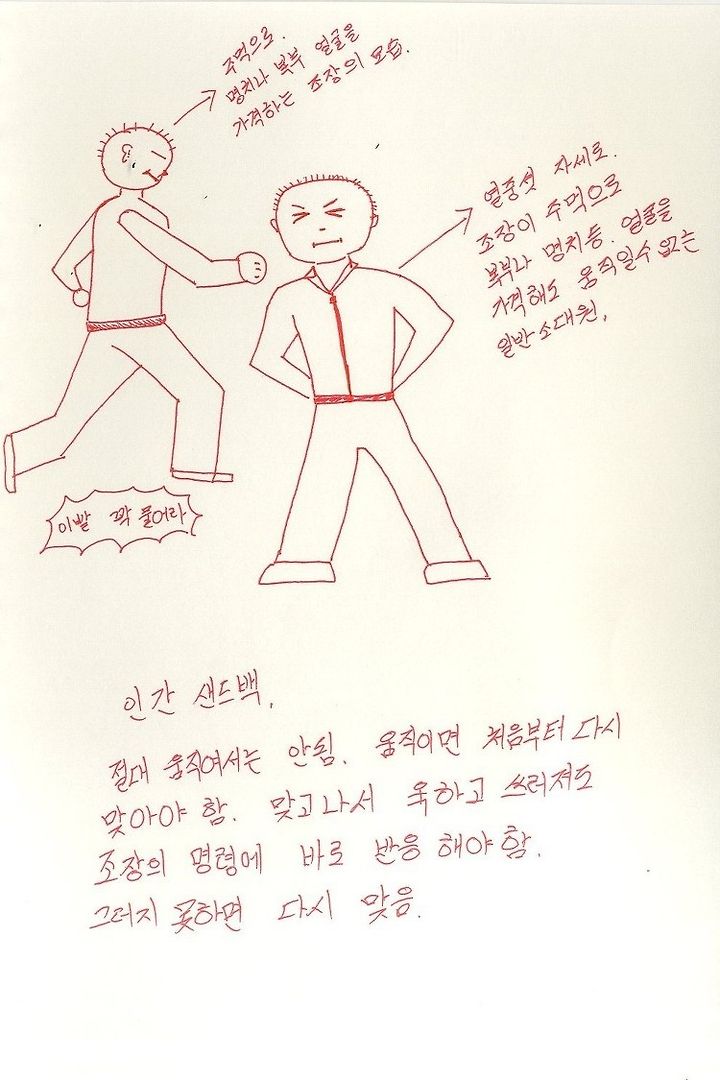 주먹으로.
명치나 복부 얼굴을
가격하는 조장의 모습.
열중셧 자세로.
조장이 주먹으로
복부나 명치등. 얼굴을
가격해도 움직일수 없는
일반소대원.
이빨 꽉 물어라
인간 샌드백.
절대 움직여서는 안됨. 움직이면 처음부터 다시
맞아야 함. 맞고나서 욱하고 쓰러져도
조장의 명령에 바로 반응 해야함.
그러지 못하면 다시 맞음.